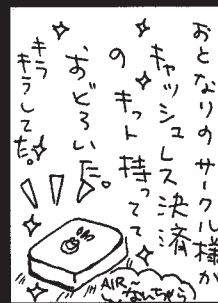 おとなりのサークル様が
キャッシュレス決済
のキット持ってて
おどろいた。
キラ
キラしてた。
AIR〜
ないちゃら